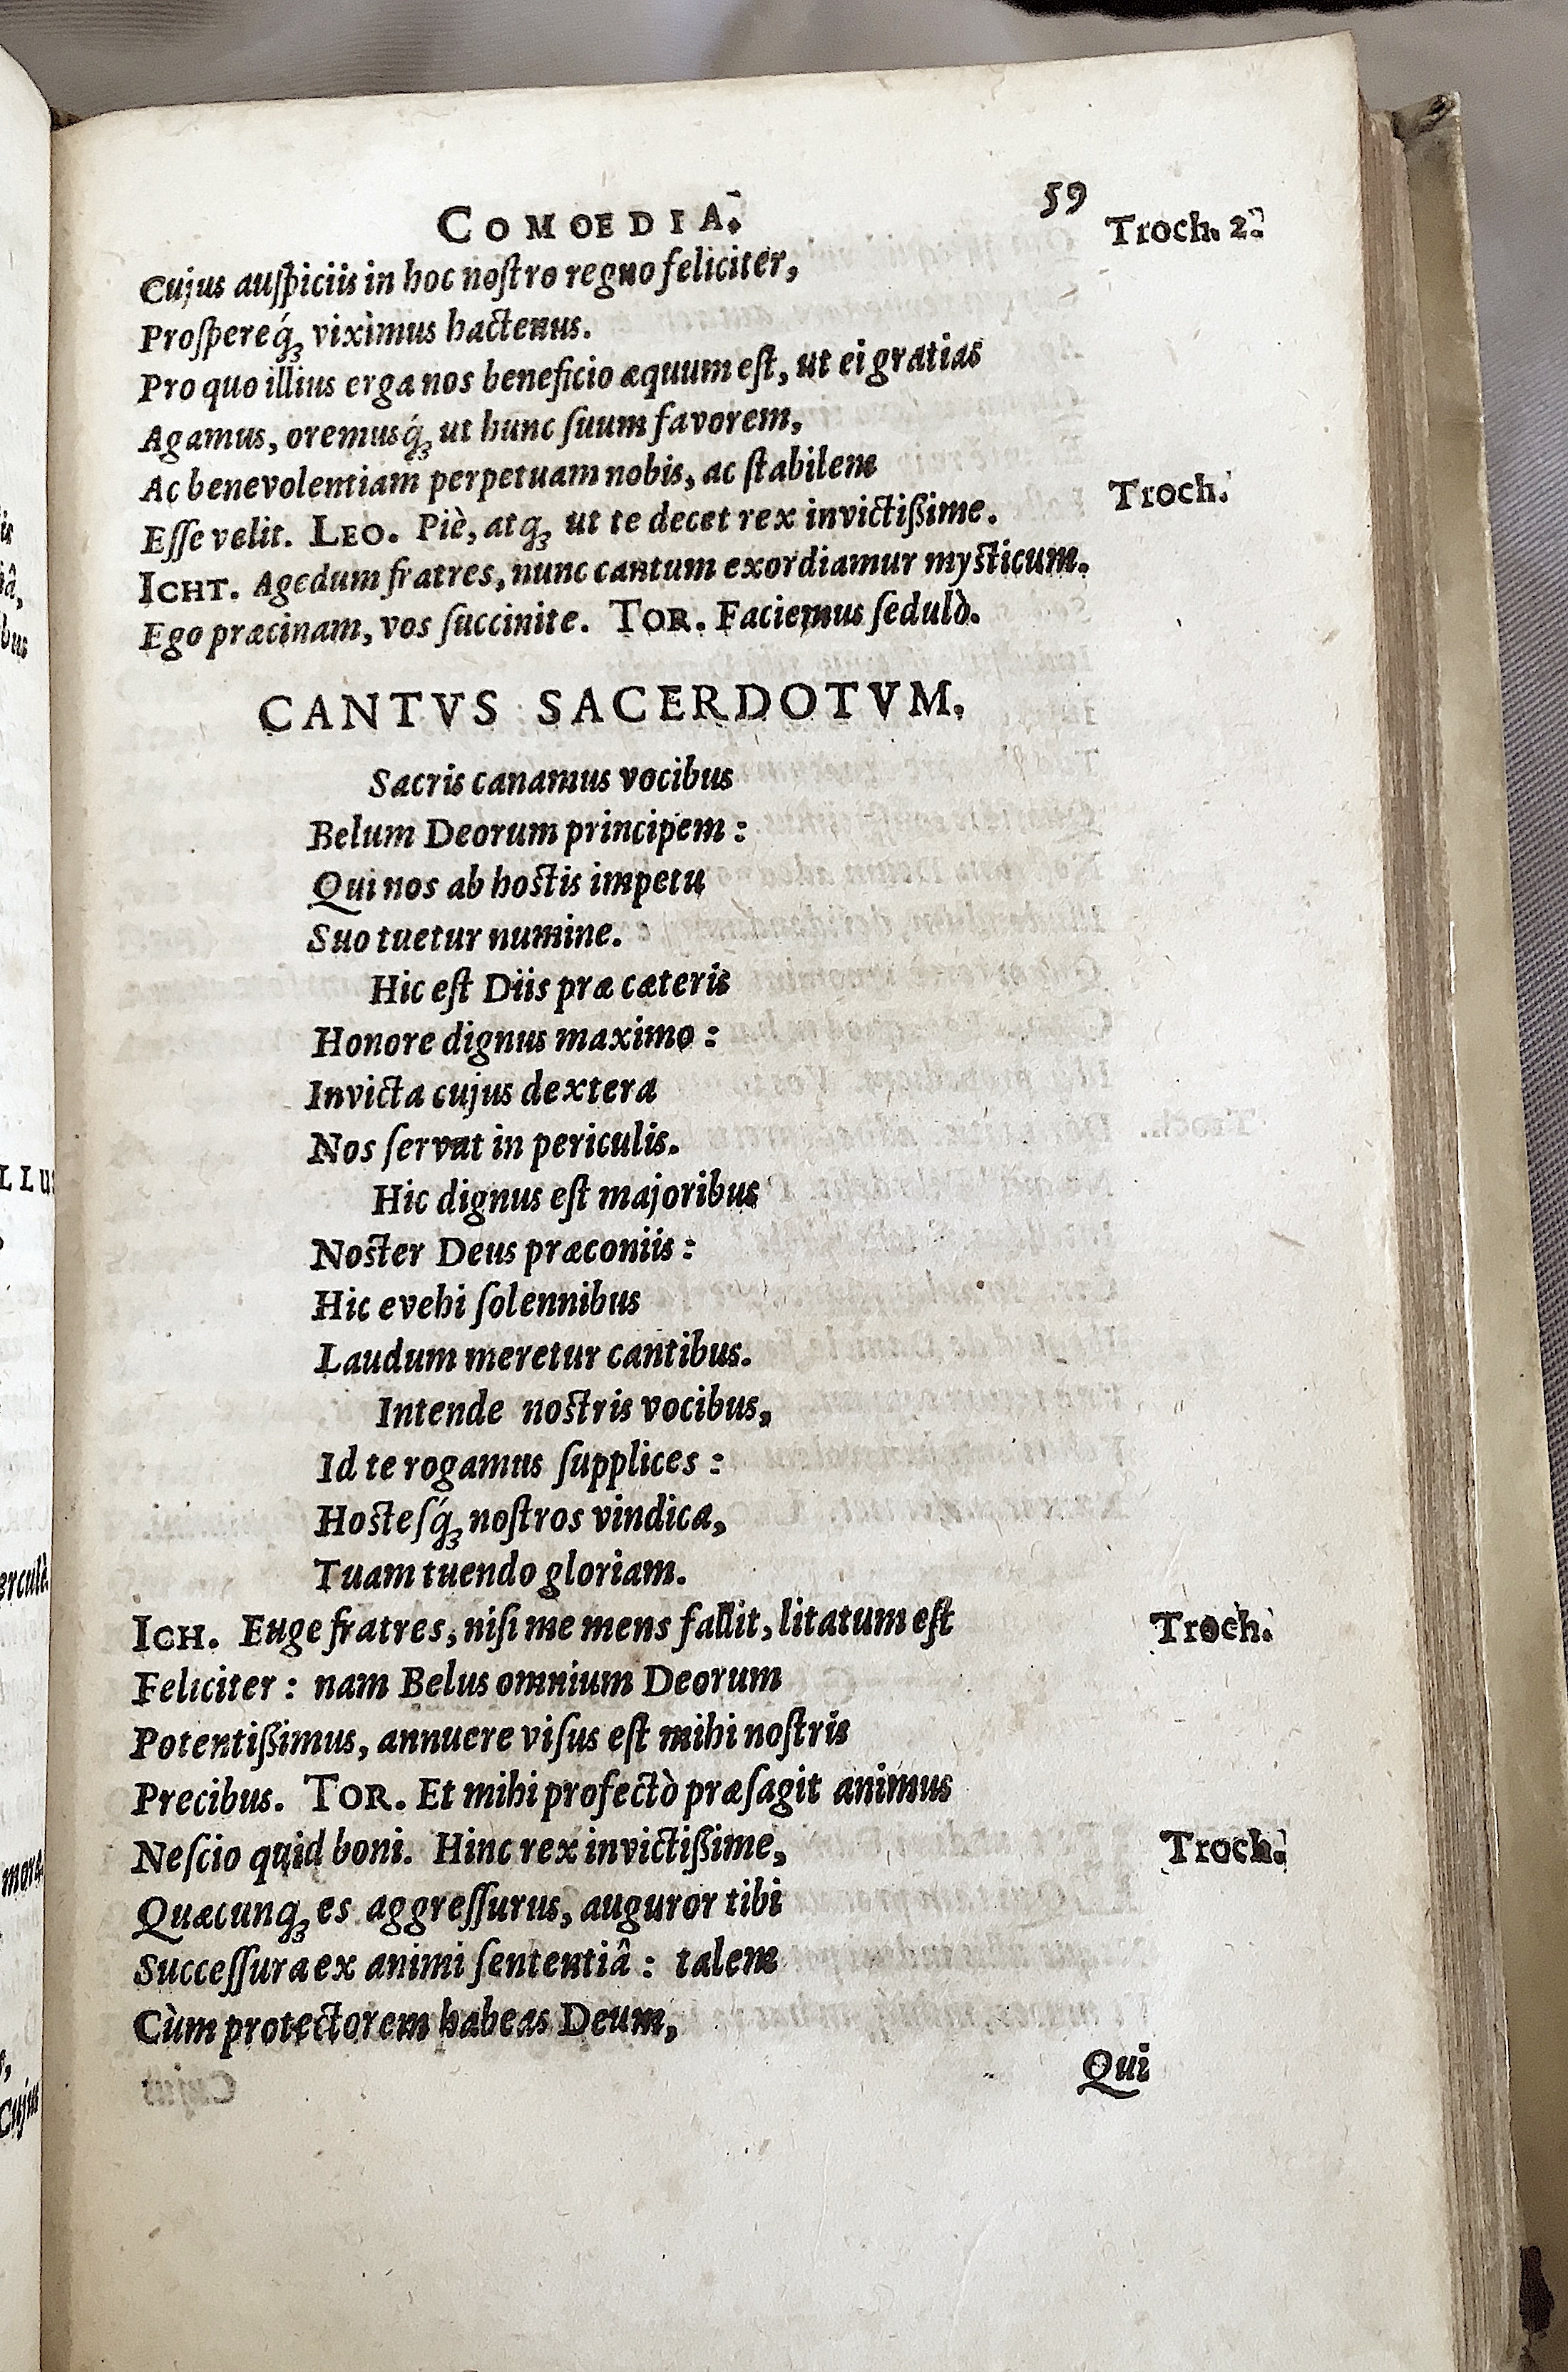 COMOEDIA. 59
Cujus auſpiciis in hoc noſtro regno feliciter, Troch. 2.
Proſpereq́ꝫ viximus hactenus.
Pro quo illius erga nos beneficio æquum eſt, ut ei gratias
Agamus, oremusq́ꝫ ut hunc ſuum favorem,
Ac benevolentiam perpetuam nobis, ac ſtabilem
Eſſe velit. LEO. Piè, atqꝫ ut te decet rex invictiſsime. Troch.
ICHT. Agedum fratres, nunc cantum exordiamur myſticum.
Ego præcinam, vos ſuccinite. TOR. Faciemus ſedulò.
CANTVS SACERDOTVM.
Sacris canamus vocibus
Belum Deorum principem :
Qui nos ab hoſtis impetu
Suo tuetur numine.
Hic eſt Diis præ cæteris
Honore dignus maximo :
Invicta cujus dextera
Nos ſervat in periculis.
Hic dignus eſt majoribus
Noſter Deus præconiis :
Hic evehi ſolennibus
Laudum meretur cantibus.
Intende noſtris vocibus,
Id te rogamus ſupplices :
Hoſteſq́ꝫ noſtros vindica,
Tuam tuendo gloriam.
ICH. Euge fratres, niſi me mens fallit, litatum eſt Troch.
Feliciter : nam Belus omnium Deorum
Potentiſsimus, annuere viſus eſt mihi noſtris
Precibus. TOR. Et mihi profectò præſagit animus
Neſcio quid boni. Hinc rex invictiſsime, Troch.
Quæcunqꝫ es aggreſſurus, auguror tibi
Succeſſura ex animi ſententiâ : talem
Cùm protectorem habeas Deum,
Qui